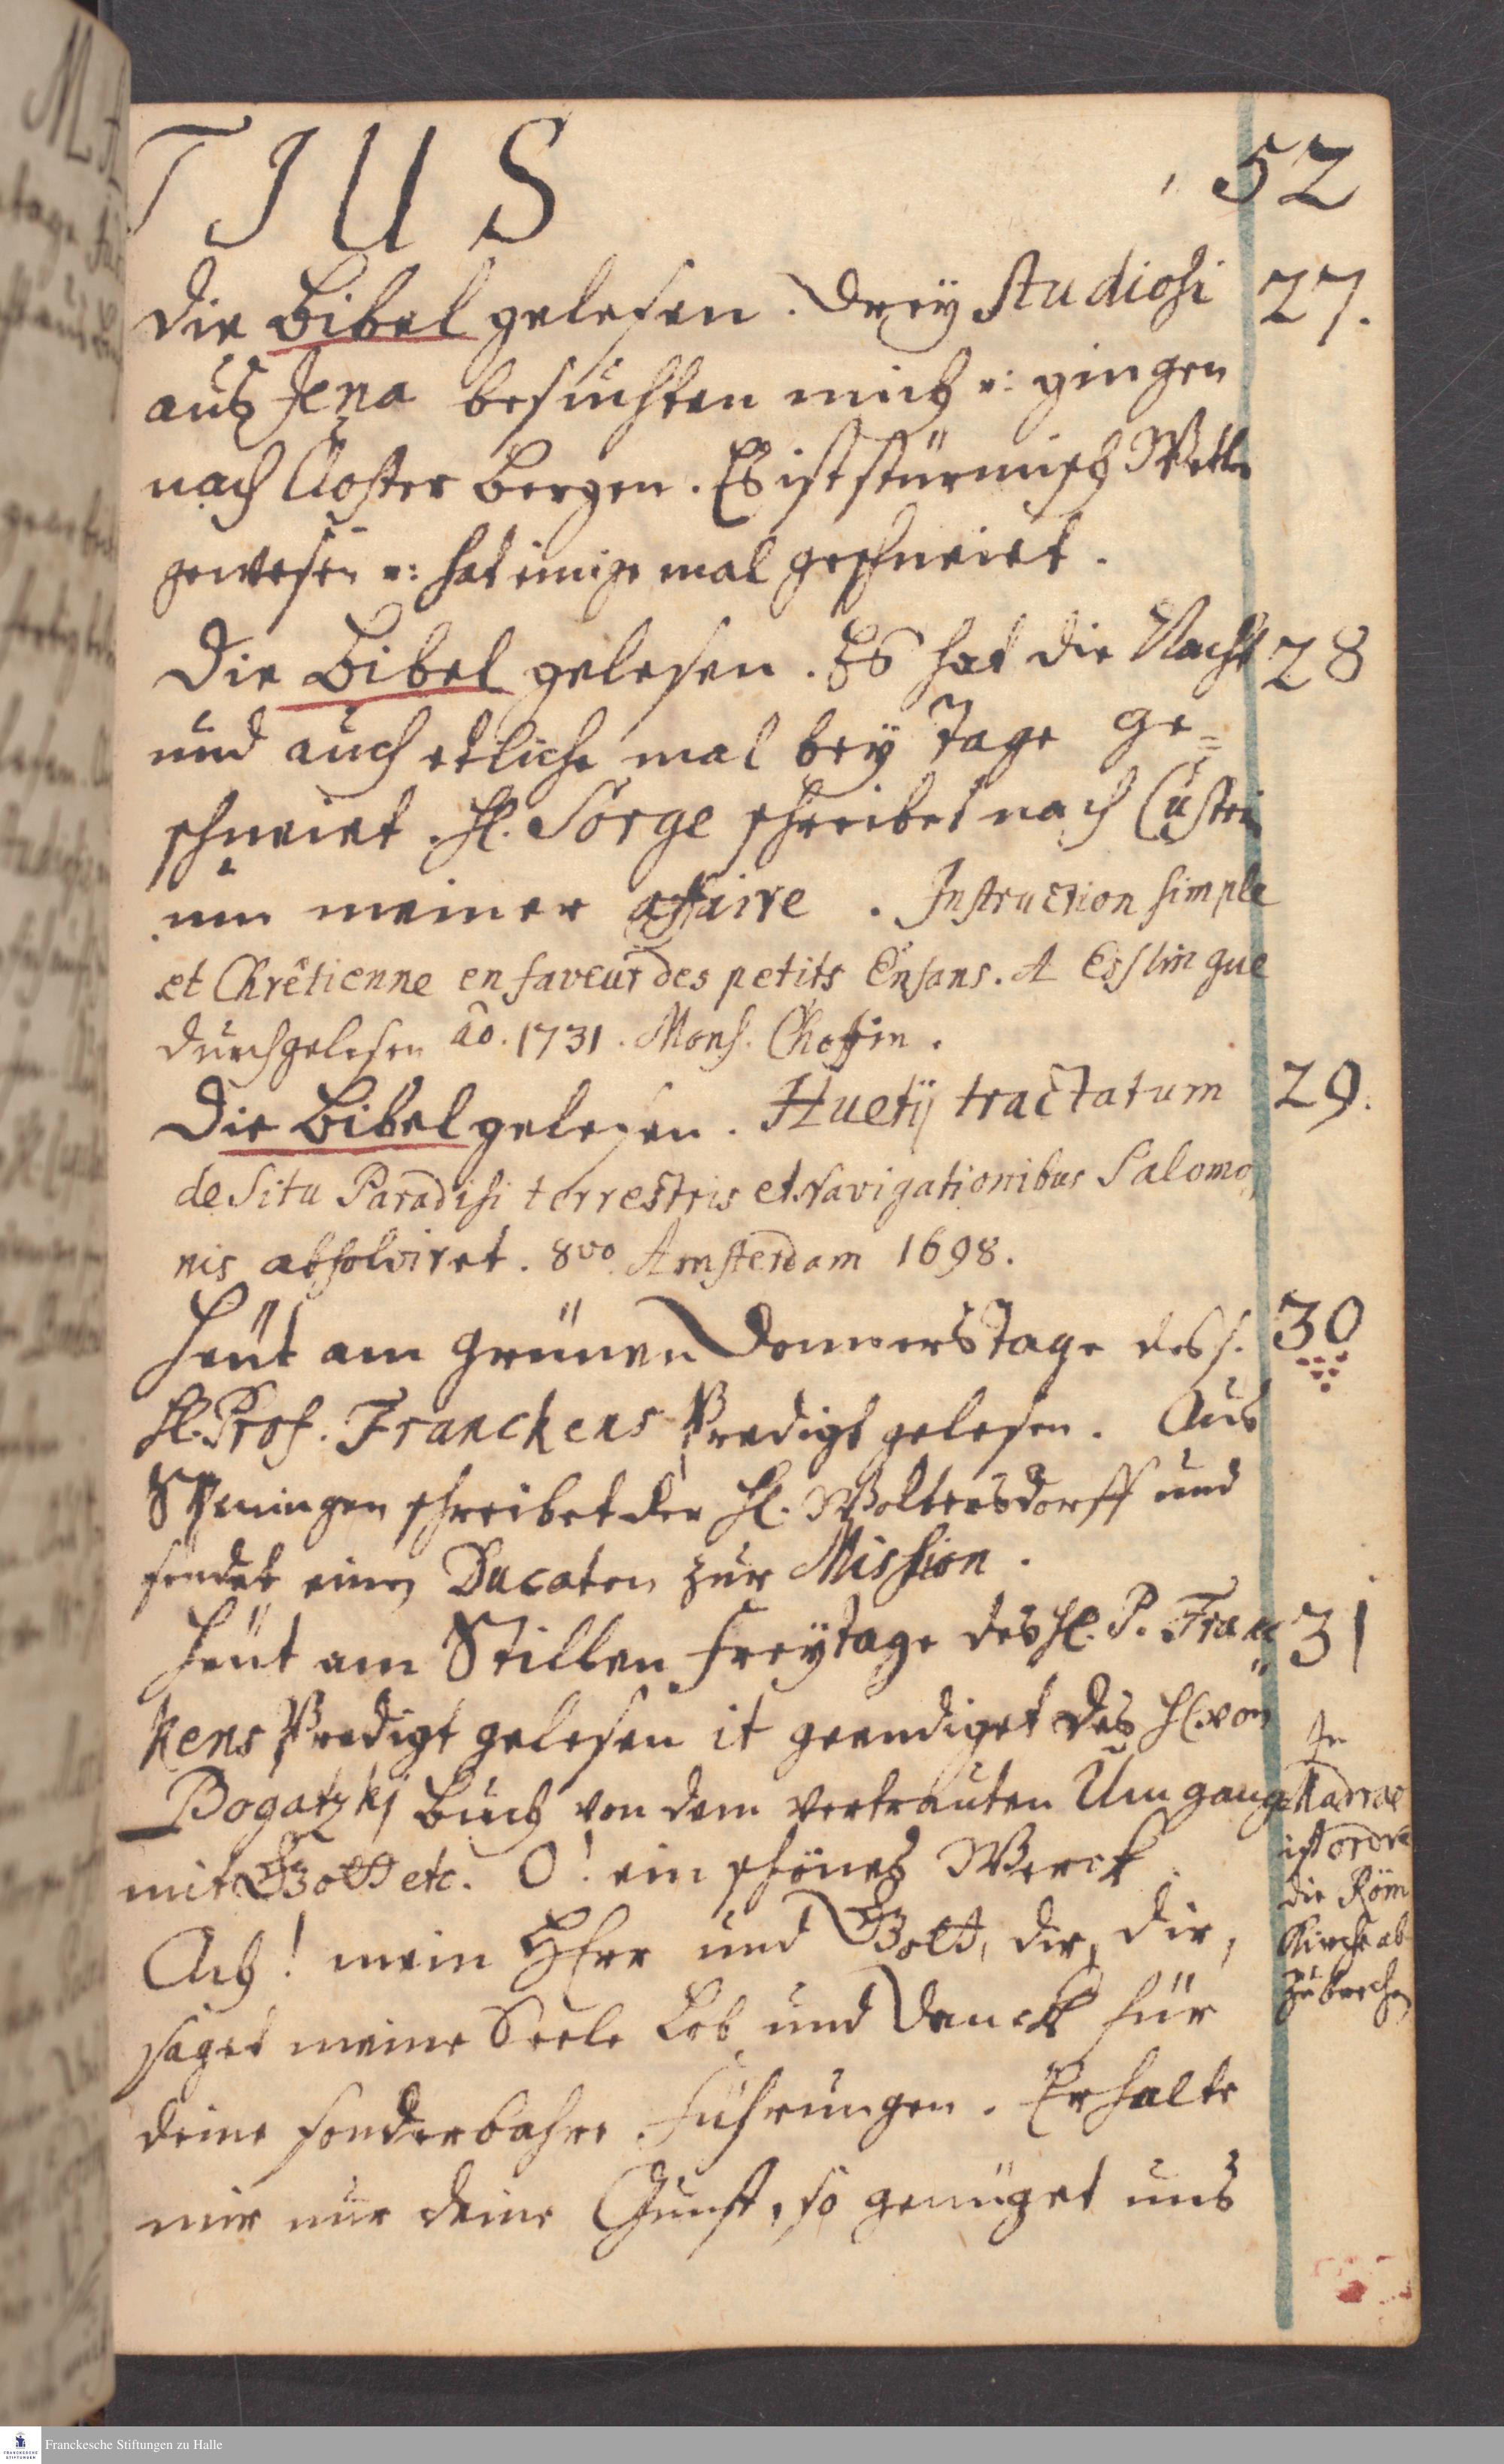 TIUS 52
Die Bibel gelesen. Drey Studiosi 27.
aus Jena besuchten mich u: gingen
nach Closter Bergen. Es ist stürmisch Wetter
gewesen u: hat einige mal geschneiet.
Die Bibel gelesen. Es hat die Nacht 28
und auch etliche mal bey Tage ge=
schneiet. H. Sorge schreibet nach Cüstrin
um meiner affaire. Instruction simple
et Chrêtienne en faveur des petits Enfans. A Esslingue
durchgelesen ao. 1731. Mons. Choffin.
Die Bibel gelesen. Huetij tractatum 29.
de Situ Paradisi terrestris et Navigationibus Salomo
nis absolviret. 8vo Amsterdam 1698.
Heut am Grünen Donnerstage des s. 30
H. Prof. Franckens Predigt gelesen. Aus
schreibet der H. Woltersdorff und
sendet einen Ducaten zur Mission.
Heut am Stillen Freytage des H. P. Franc 31
kens Predigt gelesen it geendiget des H. von
Bogatzkj Buch von dem vertrauten Umgange
mit Gott etc. O! ein schönes Werck.
Ach! mein HErr und Gott, dir, dir,
saget meine Seele Lob und Danck für
deine sonderbahre Führungen. Erhalte
mir nur deine Gunst, so genüget uns
In
Madras
ist ordre
die Röm
Kirche ab
zubrechen
Franckesche Stiftungen zu Halle